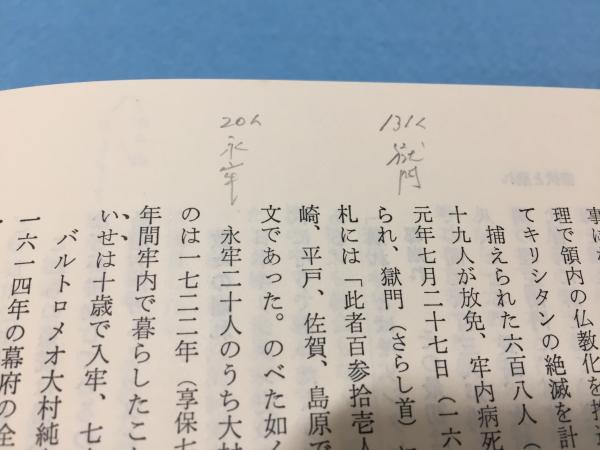 131人
獄門
20人
永牢
理で領内の仏教化を推進
てキリシタンの絶滅を計
捕えられた六百八人（
十九人が放免、牢内病死
元年七月二十七日（一六
られ、獄門（さらし首）
札には「此者百参拾壱人
崎、平戸、佐賀、島原で
文であった。のべた如く
永牢二十人のうち大村
のは一七二二年（享保七
年間牢内で暮らしたこ
いせは十歳で入牢、七
バルトロメオ大村純
一六一四年の幕府の全